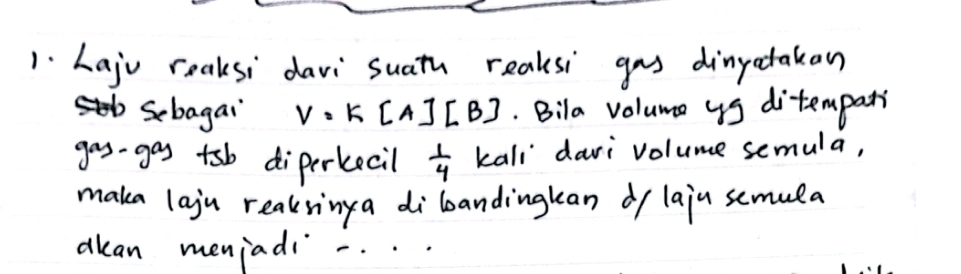 1. Laju reaksi dari suatu reaksi gas dinyatakan
sebagai V = K [A] [B]. Bila volume yg ditempati
gas-gas tsb diperkecil 1/4 kali dari volume semula,
maka laju reaksinya dibandingkan d/ laju semula
akan menjadi - . . .